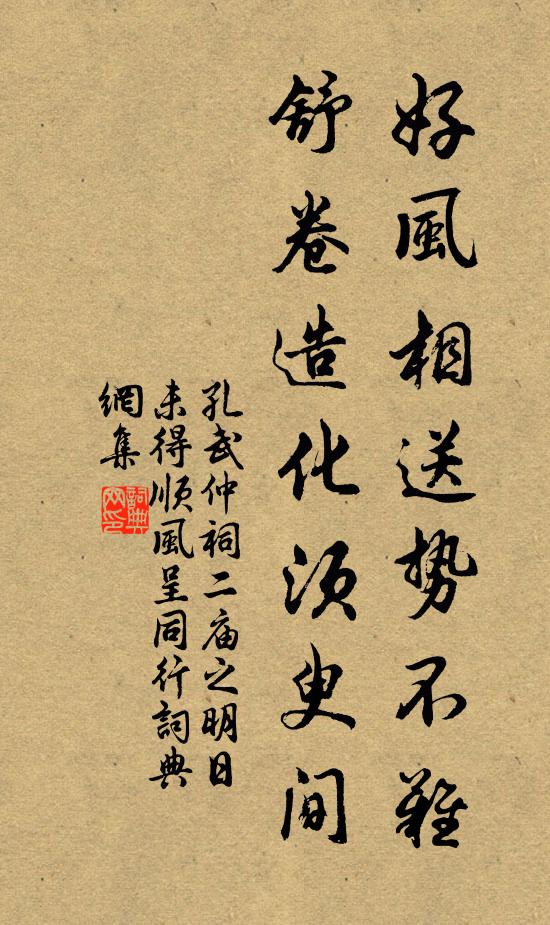 好風相送勢不難
舒卷造化須臾間
孔武仲祠二庙之明日
未得順風呈同行詞典
網集
詞典網印